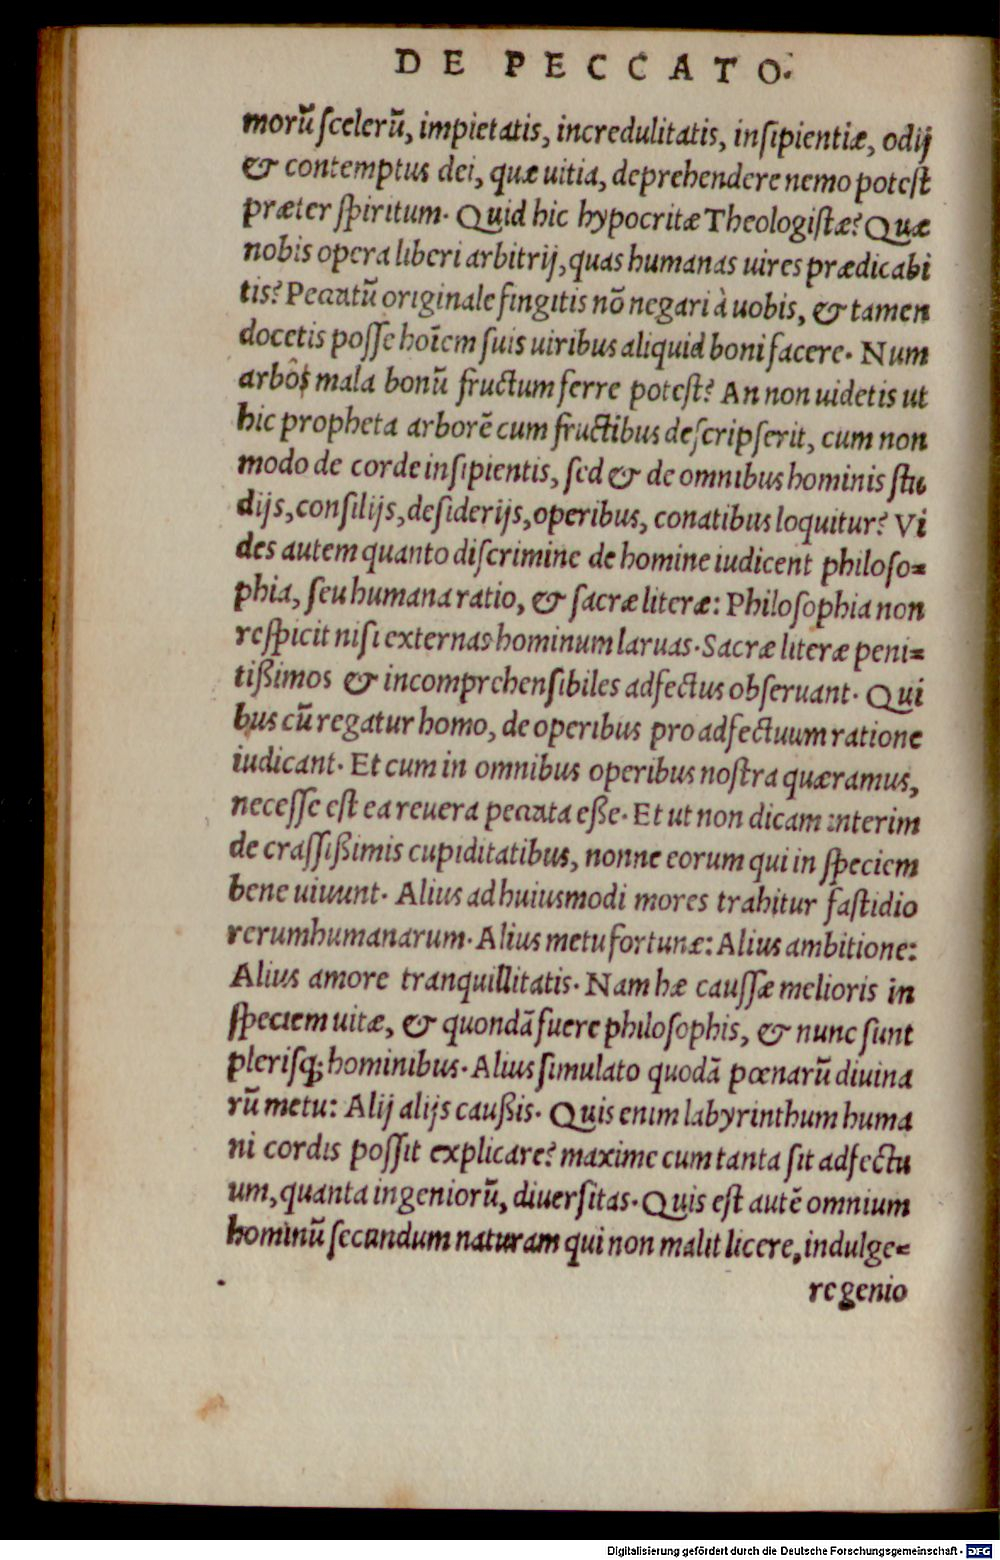 DE PECCATO.
morū scelerū, impietatis, incredulitatis, insipientiæ, odij
& contemptus dei, quæ uitia, deprehendere nemo potest
præter spiritum. Quid hic hypocritæ Theologistæ? Quæ
nobis opera liberi arbitrij, quas humanas uires prædicabi
tis? Peccatū originale fingitis nō negari à uobis, & tamen
docetis posse hoīem suis uiribus aliquid boni facere. Num
arbos mala bonū fructum ferre potest? An non uidetis ut
hic propheta arborē cum fructibus descripserit, cum non
modo de corde insipientis, sed & de omnibus hominis stu
dijs, consilijs, desiderijs, operibus, conatibus loquitur? Vi
des autem quanto discrimine de homine iudicent philoso=
phia, seu humana ratio, & sacræ literæ: Philosophia non
respicit nisi externas hominum laruas. Sacræ literæ peni=
tißimos & incomprehensibiles adfectus obseruant. Qui
bus cū regatur homo, de operibus pro adfectuum ratione
iudicant. Et cum in omnibus operibus nostra quæramus,
necesse est ea reuera peccata eße. Et ut non dicam interim
de crassißimis cupiditatibus, nonne eorum qui in speciem
bene uiuunt. Alius ad huiusmodi mores trahitur fastidio
rerum humanarum. Alius metu fortunæ: Alius ambitione:
Alius amore tranquillitatis. Nam hæ caussæ melioris in
speciem uitæ, & quondā fuere philosophis, & nunc sunt
plerisq; hominibus. Alius simulato quodā pœnarū diuina
rū metu: Alij alijs caußis. Quis enim labyrinthum huma
ni cordis possit explicare? maxime cum tanta sit adfectu
um, quanta ingeniorū, diuersitas. Quis est autē omnium
hominū secundum naturam qui non malit licere, indulge=
re genio
Digitalisierung gefördert durch die Deutsche Forschungsgemeinschaft - DFG